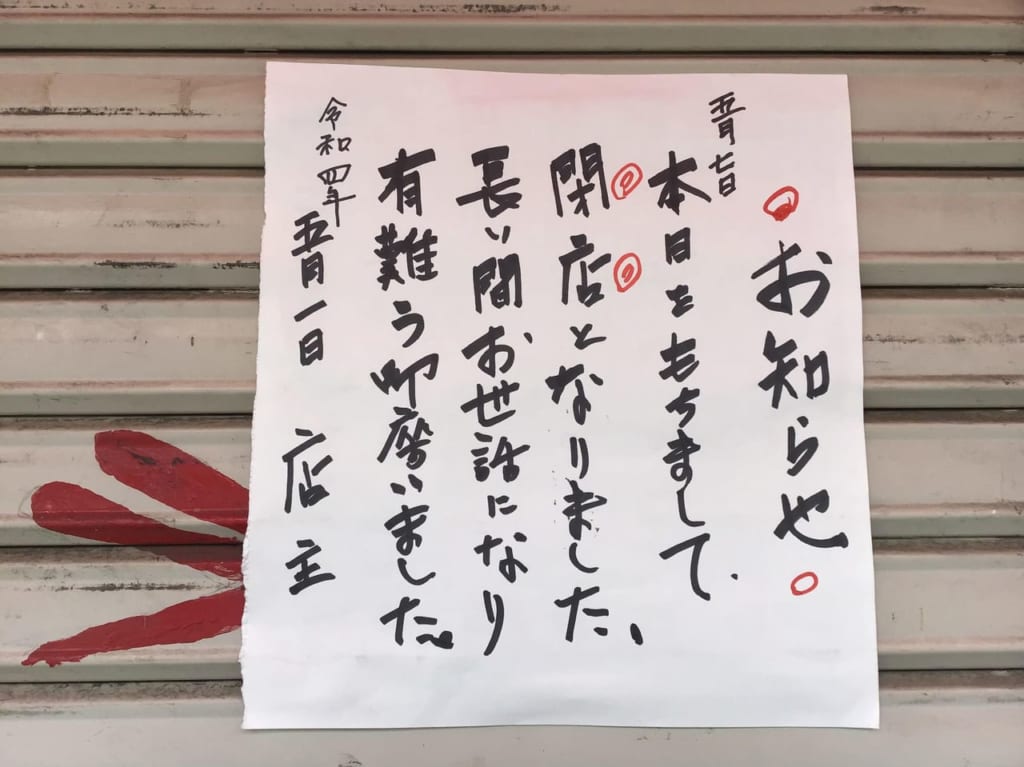 お知らせ
五月七日
本日をもちまして
閉店となりました、
長い間お世話になり
有難う御座いました。
令和四年
五月一日 店主